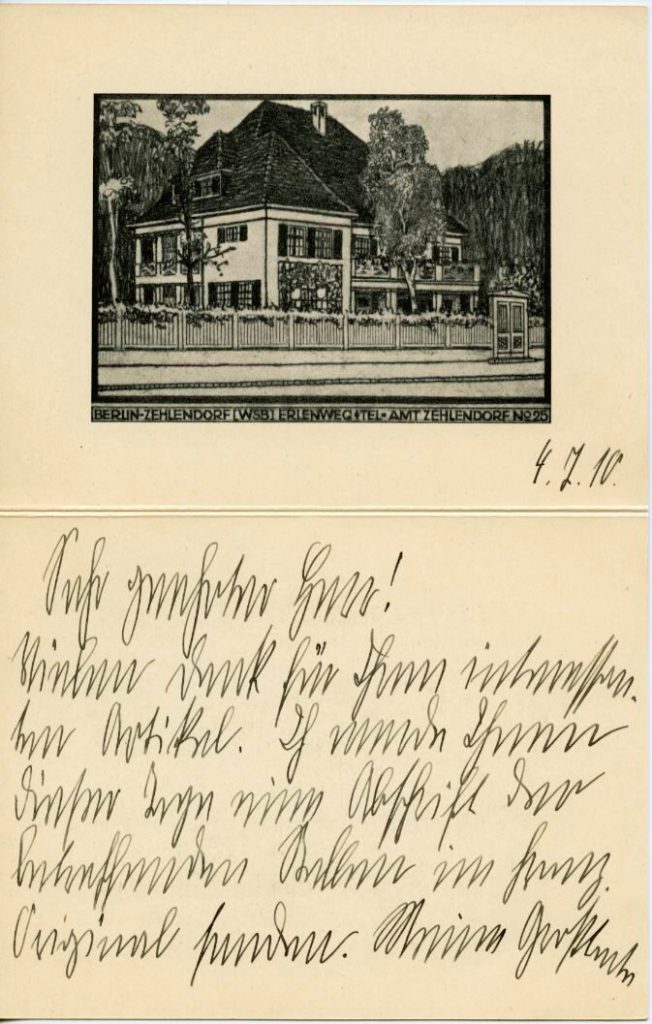 BERLIN-ZEHLENDORF [WSB] ERLENWEG • TEL • AMT ZEHLENDORF No 25
4.7.10.
Sehr geehrter Herr!
Vielen Dank für Ihren interessan-
ten Artikel. Ich werde Ihnen
dieser Tage eine Abschrift der
betreffenden Stellen im franz.
Original senden. Meine